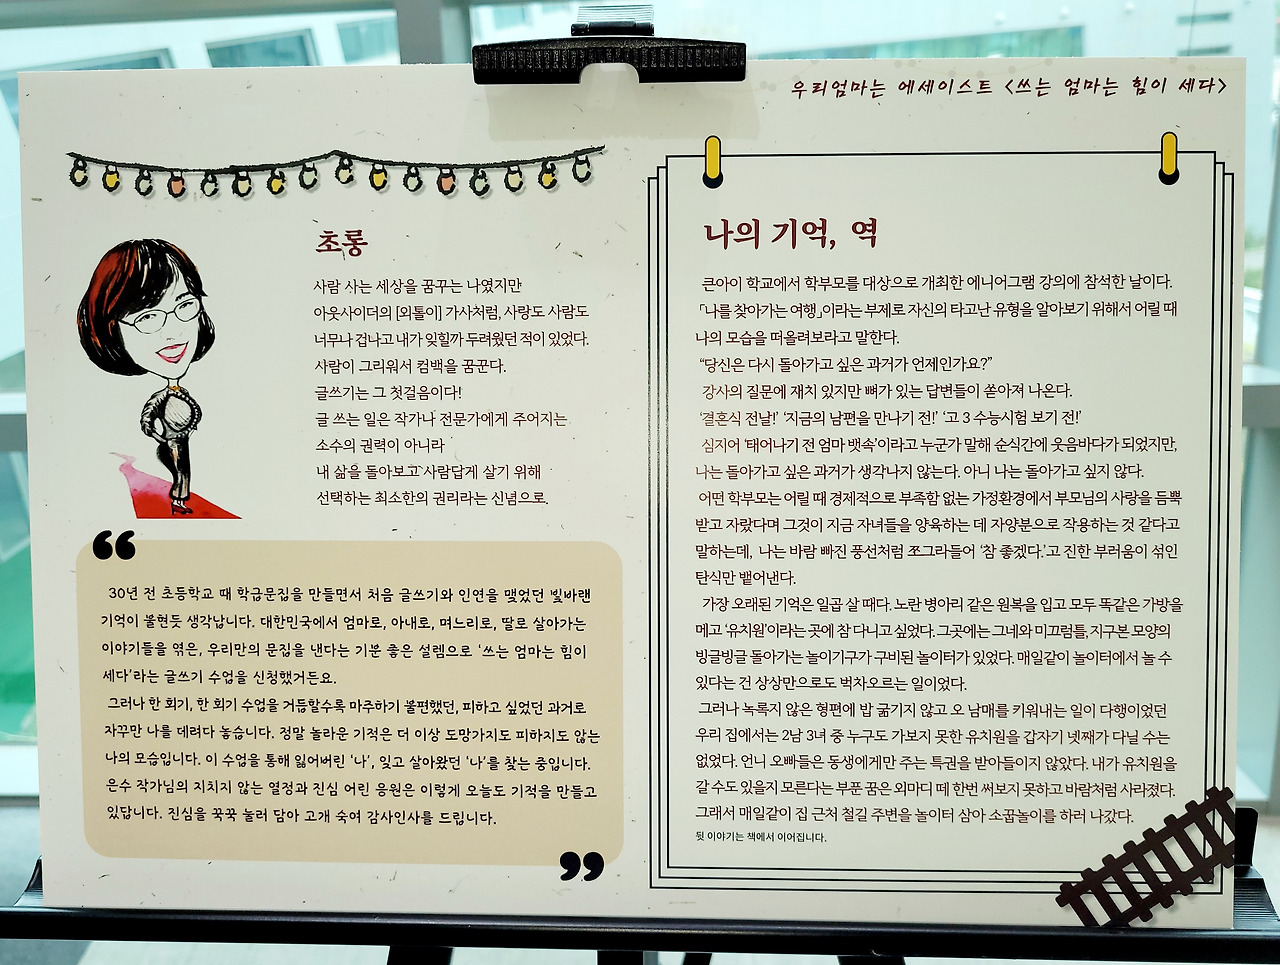 우리엄마는 에세이스트 <쓰는 엄마는 힘이 세다>
초롱
사람 사는 세상을 꿈꾸는 나였지만
아웃사이더의 [외톨이] 가사처럼, 사랑도 사람도
너무나 겁나고 내가 잊힐까 두려웠던 적이 있었다.
사람이 그리워서 컴백을 꿈꾼다.
글쓰기는 그 첫걸음이다!
글 쓰는 일은 작가나 전문가에게 주어지는
소수의 권력이 아니라
내 삶을 돌아보고 사람답게 살기 위해
선택하는 최소한의 권리라는 신념으로.
“
30년 전 초등학교 때 학급문집을 만들면서 처음 글쓰기와 인연을 맺었던 빛바랜
기억이 불현듯 생각납니다. 대한민국에서 엄마로, 아내로, 며느리로, 딸로 살아가는
이야기들을 엮은, 우리만의 문집을 낸다는 기분 좋은 설렘으로 ‘쓰는 엄마는 힘이
세다’라는 글쓰기 수업을 신청했거든요.
그러나 한 회기, 한 회기 수업을 거듭할수록 마주하기 불편했던, 피하고 싶었던 과거로
자꾸만 나를 데려다 놓습니다. 정말 놀라운 기적은 더 이상 도망가지도 피하지도 않는
나의 모습입니다. 이 수업을 통해 잃어버린 ‘나’, 잊고 살아왔던 ‘나’를 찾는 중입니다.
은수 작가님의 지치지 않는 열정과 진심 어린 응원은 이렇게 오늘도 기적을 만들고
있답니다. 진심을 꾹꾹 눌러 담아 고개 숙여 감사인사를 드립니다.
”
나의 기억, 역
큰아이 학교에서 학부모를 대상으로 개최한 에니어그램 강의에 참석한 날이다.
「나를 찾아가는 여행」이라는 부제로 자신의 타고난 유형을 알아보기 위해서 어릴 때
나의 모습을 떠올려보라고 말한다.
“당신은 다시 돌아가고 싶은 과거가 언제인가요?”
강사의 질문에 재치 있지만 뼈가 있는 답변들이 쏟아져 나온다.
‘결혼식 전날!’ ‘지금의 남편을 만나기 전!’ ‘고 3 수능시험 보기 전!’
심지어 ‘태어나기 전 엄마 뱃속’이라고 누군가 말해 순식간에 웃음바다가 되었지만,
나는 돌아가고 싶은 과거가 생각나지 않는다. 아니 나는 돌아가고 싶지 않다.
어떤 학부모는 어릴 때 경제적으로 부족함 없는 가정환경에서 부모님의 사랑을 듬뿍
받고 자랐다며 그것이 지금 자녀들을 양육하는 데 자양분으로 작용하는 것 같다고
말하는데, 나는 바람 빠진 풍선처럼 쪼그라들어 ‘참 좋겠다.’고 진한 부러움이 섞인
탄식만 뱉어낸다.
가장 오래된 기억은 일곱 살 때다. 노란 병아리 같은 원복을 입고 모두 똑같은 가방을
메고 ‘유치원’이라는 곳에 참 다니고 싶었다. 그곳에는 그네와 미끄럼틀, 지구본 모양의
빙글빙글 돌아가는 놀이기구가 구비된 놀이터가 있었다. 매일같이 놀이터에서 놀 수
있다는 건 상상만으로도 벅차오르는 일이었다.
그러나 녹록지 않은 형편에 밥 굶기지 않고 오 남매를 키워내는 일이 다행이었던
우리 집에서는 2남 3녀 중 누구도 가보지 못한 유치원을 갑자기 넷째가 다닐 수는
없었다. 언니 오빠들은 동생에게만 주는 특권을 받아들이지 않았다. 내가 유치원을
갈 수도 있을지 모른다는 부푼 꿈은 외마디 떼 한번 써보지 못하고 바람처럼 사라졌다.
그래서 매일같이 집 근처 철길 주변을 놀이터 삼아 소꿉놀이를 하러 나갔다.
뒷 이야기는 책에서 이어집니다.